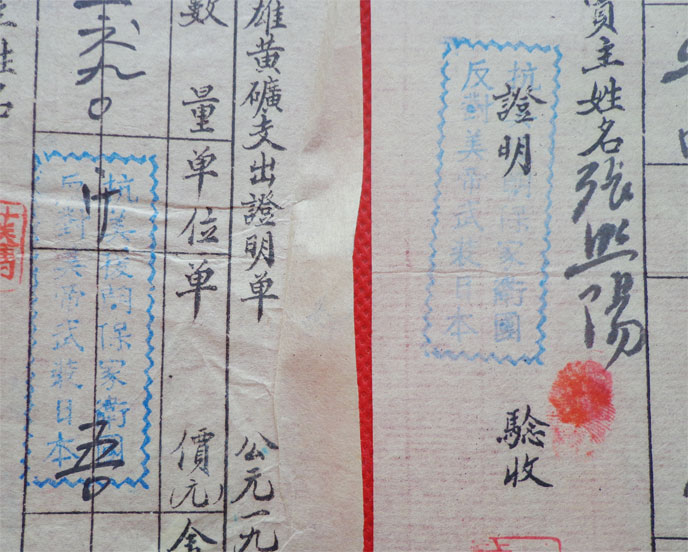 主姓名張熙陽
證明 騐收
抗美援朝保家衛國
反對美帝武裝日本
雄黃礦支出證明单 公元一九
數量单位单價(元)金
抗美援朝保家衛國
反對美帝武裝日本
五〇
姓名